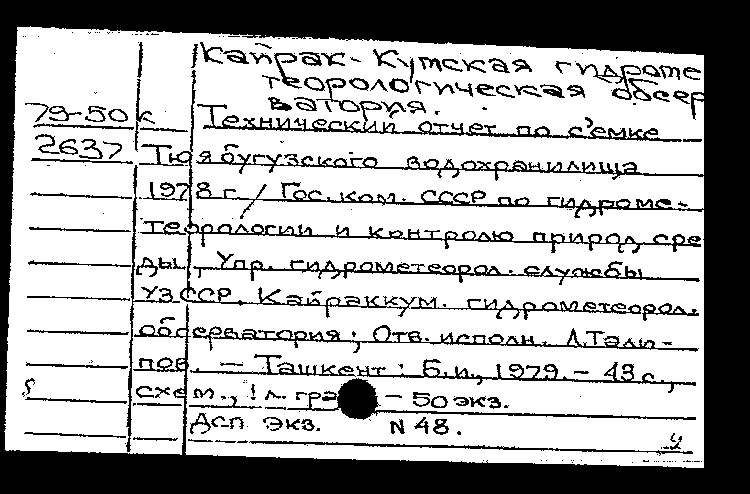 Кайрак-Кумская гидроме
теорологическая обсер
ватория.
79-50 к Технический отчет по с'емке
2637 Тюябугузского водохранилища
1978 г. / Гос. ком. СССР по гидроме-
теорологии и контролю природ. сре
ды, Упр. гидрометеорол. службы
УзССР. Кайраккум. гидрометеорол.
обсерватория; Отв. исполн. Л.Тали-
пов. - Ташкент: Б.и., 1979. - 43 с.,
схем., 1 л. гра - 50 экз.
Дсп экз. N 48.